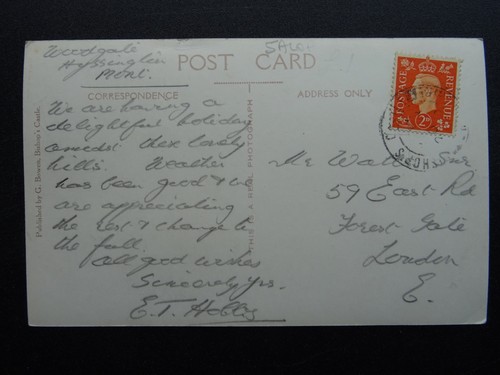 Woodgate
Hyssington
Mont.
POST CARD
CORRESPONDENCE
ADDRESS ONLY
We are having a
delightful holiday
amidst these lovely
hills. Weather
has been good & we
are appreciating
the rest & change to
the full.
All good wishes
Sincerely yrs.
E.T. Hobbs
Published by G. Bowen, Bishop's Castle.
THIS IS A REAL PHOTOGRAPH
POSTAGE
REVENUE
2D
SHROPS
Mr
59 East Rd
Forest Gate
London
E.